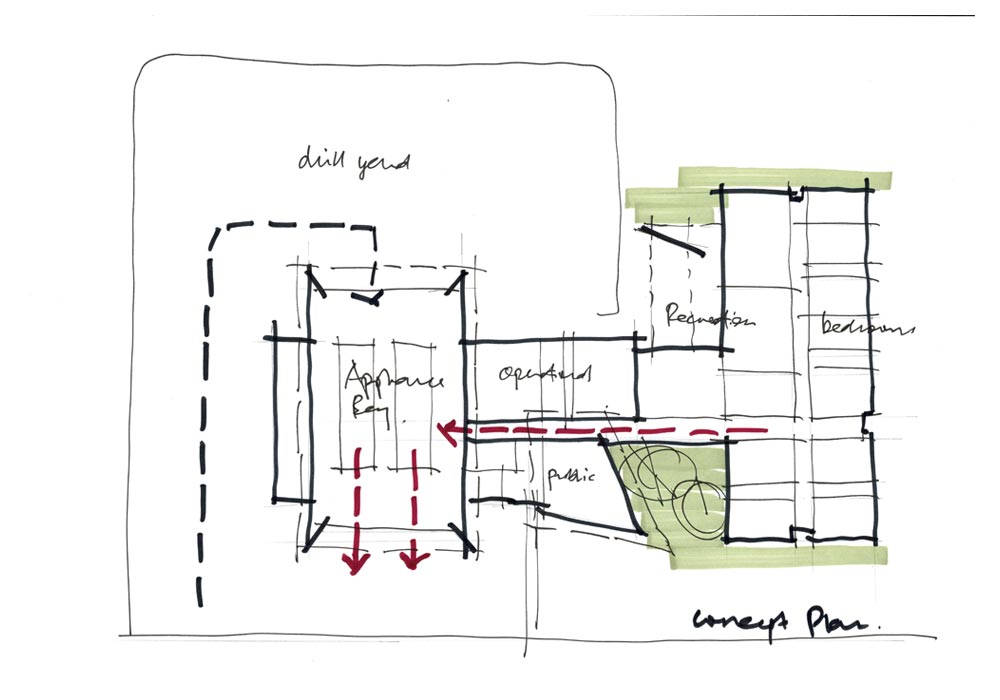 drill yard
Recreation
bedrooms
Appliance
Bay
operational
public
concept Plan.